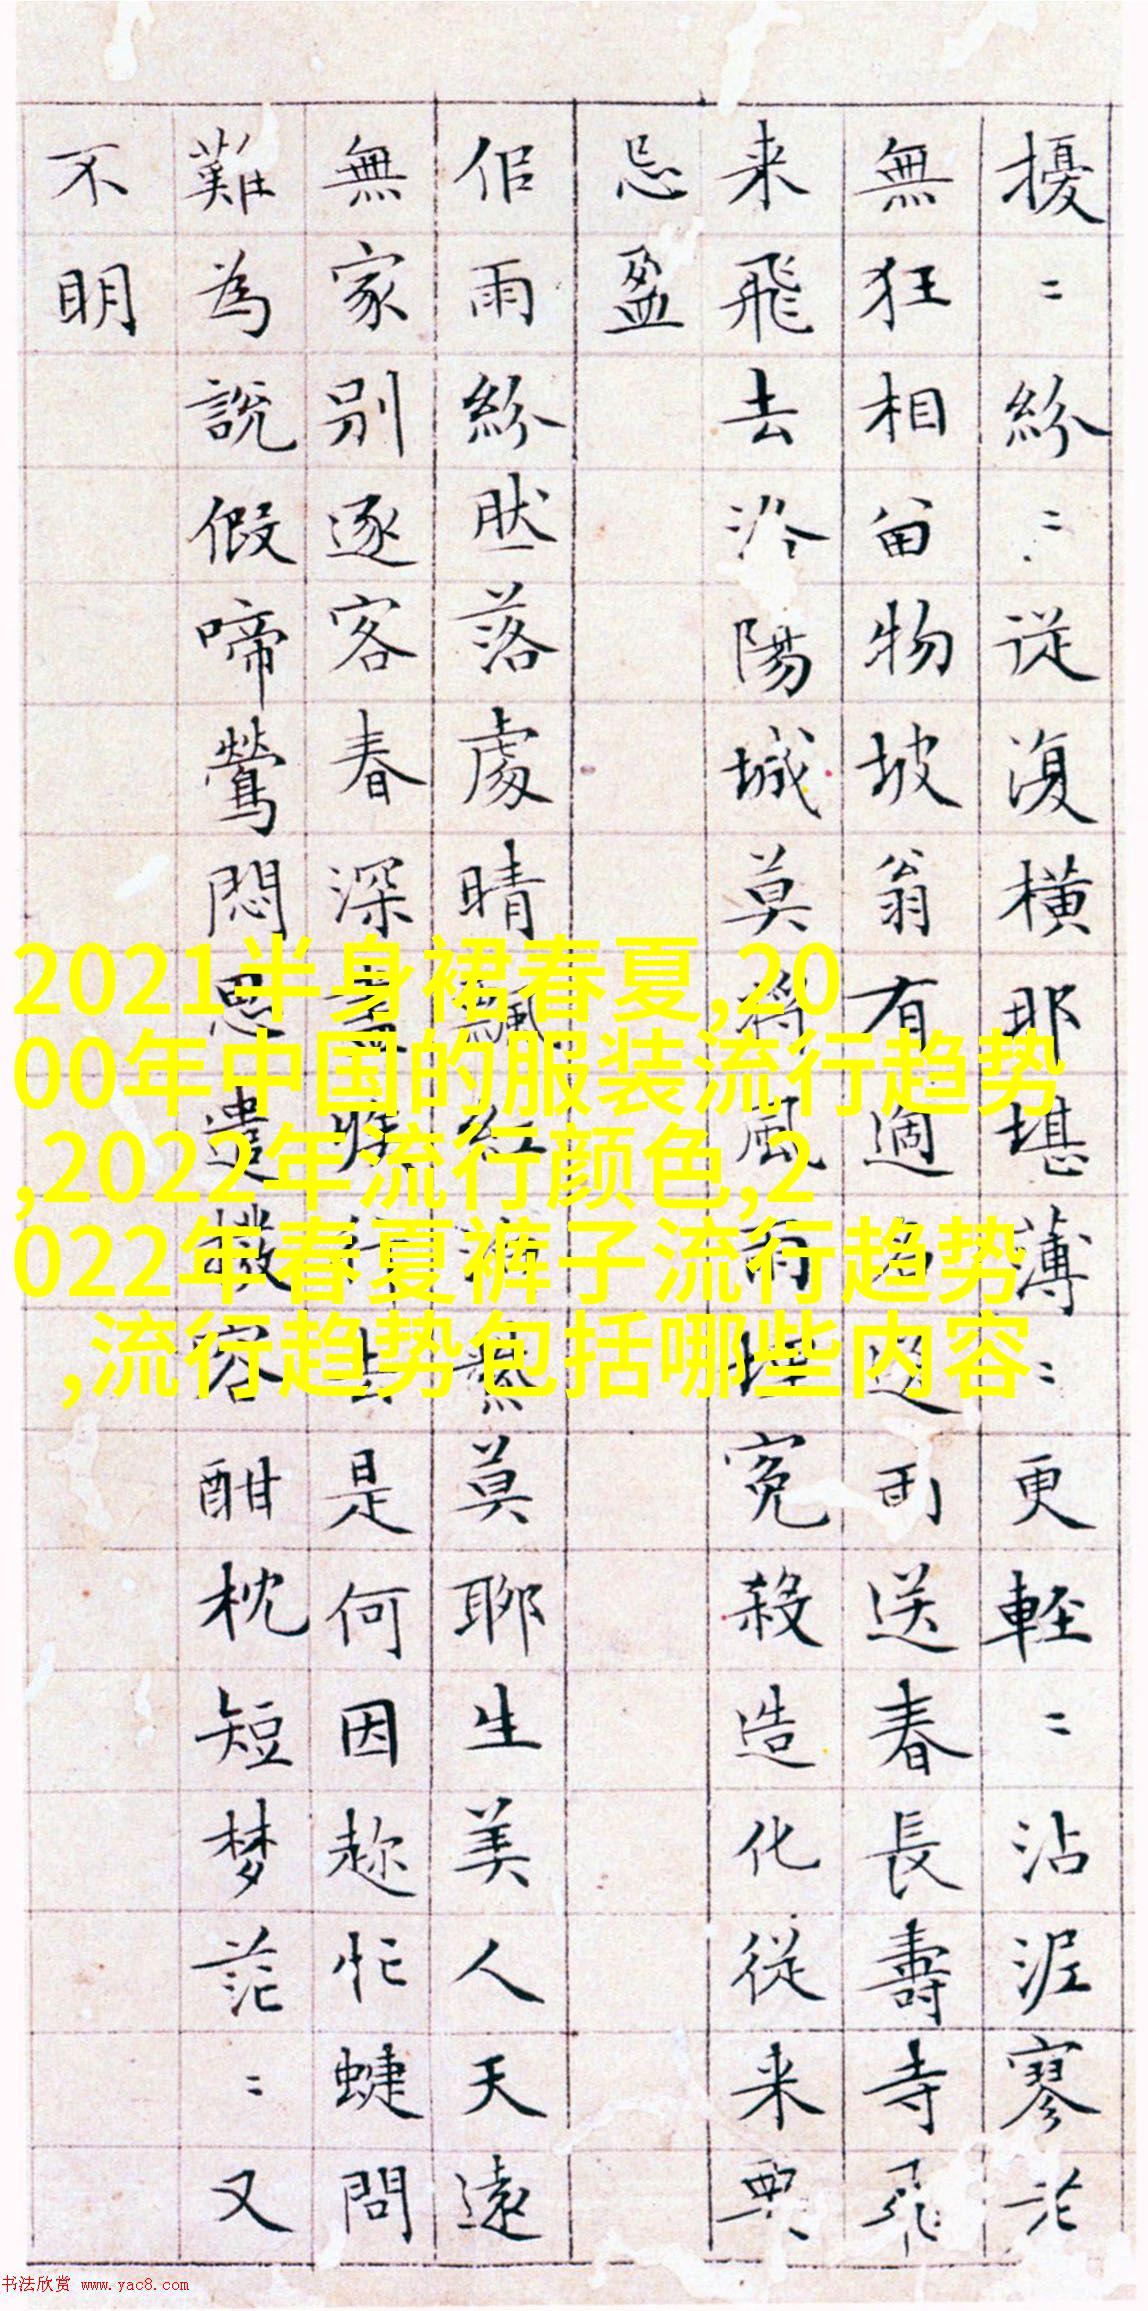 擾〻紛〻從復橫那堪薄〻更輕〻沾泥寥
無狂相留物坡翁有適過送春長壽寺飛
来飛去洛陽城莫將風雨埋冤殺造化從来要
忌盈
佀雨紛然落處晴飄紅泊無莫聊生美人天遠
無家別逐客春深盡族行去是何因趂忙蜨問
難為說假啼鶯悶思遣撥容酣枕短梦茫〻又
不明
2021半身裙春夏,20
00年中国的服装流行趋势
,2022年流行颜色,2
022年春夏裤子流行趋势
,流行趋势包括哪些内容
书法欣赏 www.yac8.com